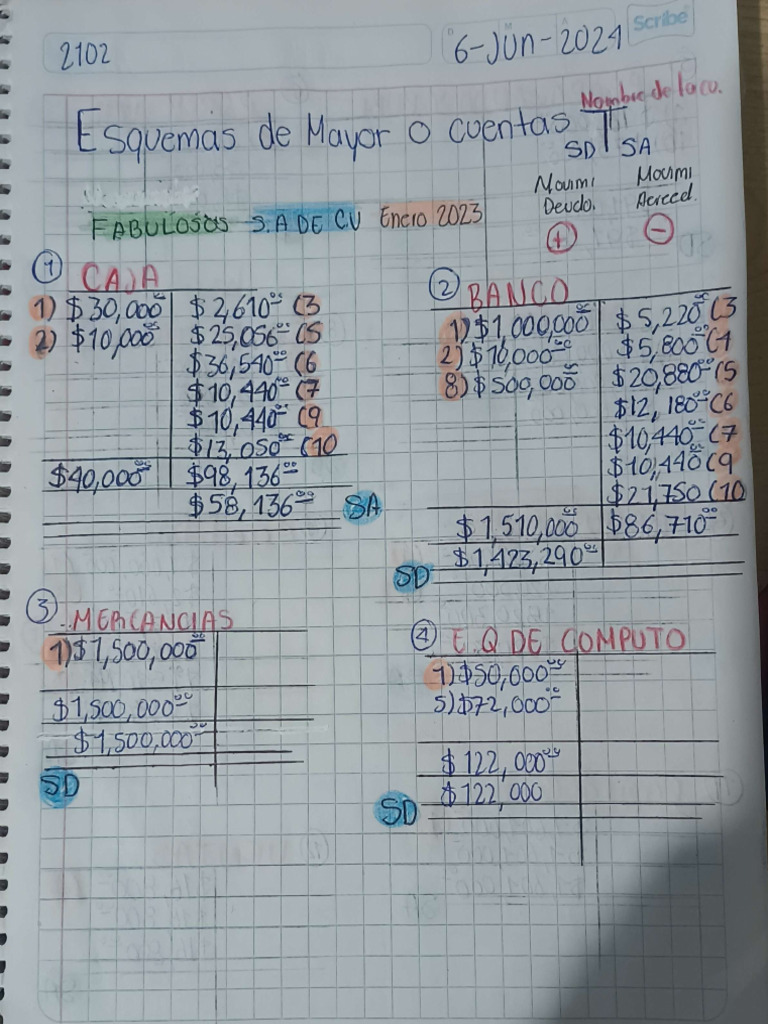 Scribe
2102
6-Jun-2024
Nombre de la cu.
Esquemas de Mayor o cuentas T
SD SA
Movimi Deudo. Movimi Acreed.
+ -
FABULOSOS S.A DE CV Enero 2023
① CAJA
1) $30,000.00 $2,610.00 (3
2) $10,000.00 $25,056.00 (5
$36,540.00 (6
$10,440.00 (7
$10,440.00 (9
$13,050.00 (10
$40,000.00 $98,136.00
$58,136.00 SA
② BANCO
1) $1,000,000.00 $5,220.00 (3
2) $10,000.00 $5,800.00 (4
8) $500,000.00 $20,880.00 (5
$12,180.00 (6
$10,440.00 (7
$10,440.00 (9
$21,750 (10
$1,510,000.00 $86,710.00
SD $1,423,290.00
③ MERCANCIAS
1) $1,500,000.00
$1,500,000.00
$1,500,000.00
SD
④ E.Q DE COMPUTO
1) $50,000.00
5) $72,000.00
$122,000.00
SD $122,000